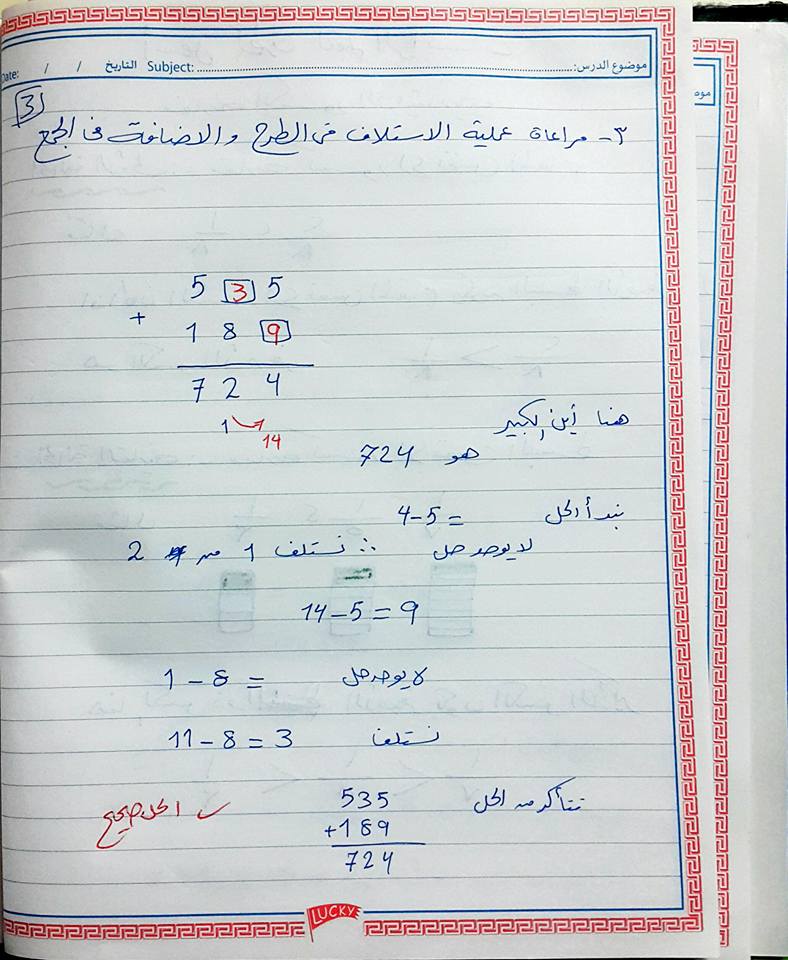 موضوع الدرس: Subject: التاريخ / / Date:
3
٣- مراعاة عملية الاستلاف فى الطرح والاضافة فى الجمع
5 3 5
+
1 8 9
7 2 4
1 14
هنا أين الكبير
هو 724
نبدأ الحل = 4-5
لا يوجد حل ∴ نستلف 1 من 2
14-5=9
لا يوجد حل 1-8 =
نستلف 11-8=3
نتأكد من الحل
535
+189
724
✓ الحل صحيح
LUCKY